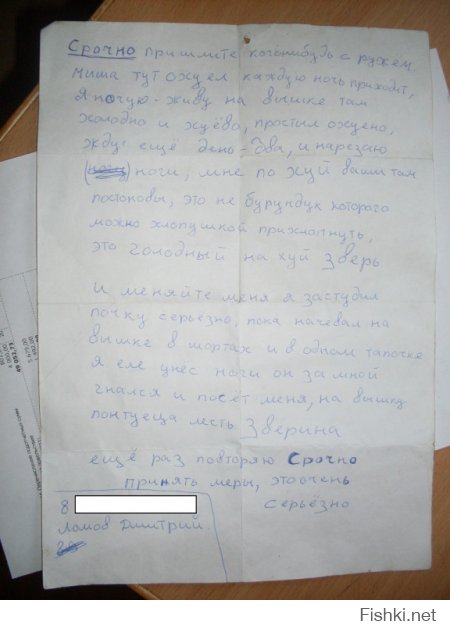 Срочно пришлите когонибудь с ружем.
Миша тут охуел каждую ночь приходит,
Я ночую-живу на вышке там
холодно и хуёво, простыл охуено,
жду ещё день-два, и нарезаю
ноги, мне по хуй ваши там
это не бурундук которого
можно хлопушкой прихлопнуть,
это голодный на хуй Зверь
и меняйте меня я застудил
почку серьёзно, пока начевал на
вышке в шортах и в одном тапочке
я еле унёс ноги он за мной
гнался и посет меня, на вышку
лесть Зверина
ещё раз повторяю Срочно
принять меры, это очень
серьёзно
8
Ломов Дмитрий
Fishki.net